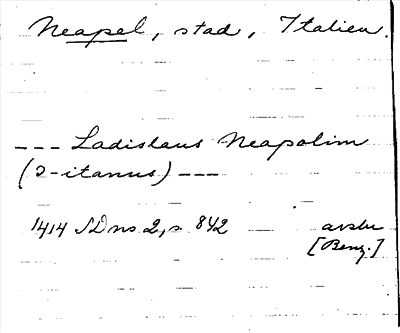 Neapel, stad, Italien.
--- Ladislaus Neapolim
(ɔ-itanus) ---
1414 SD ns 2, s. 842 avskr
[Benz.]